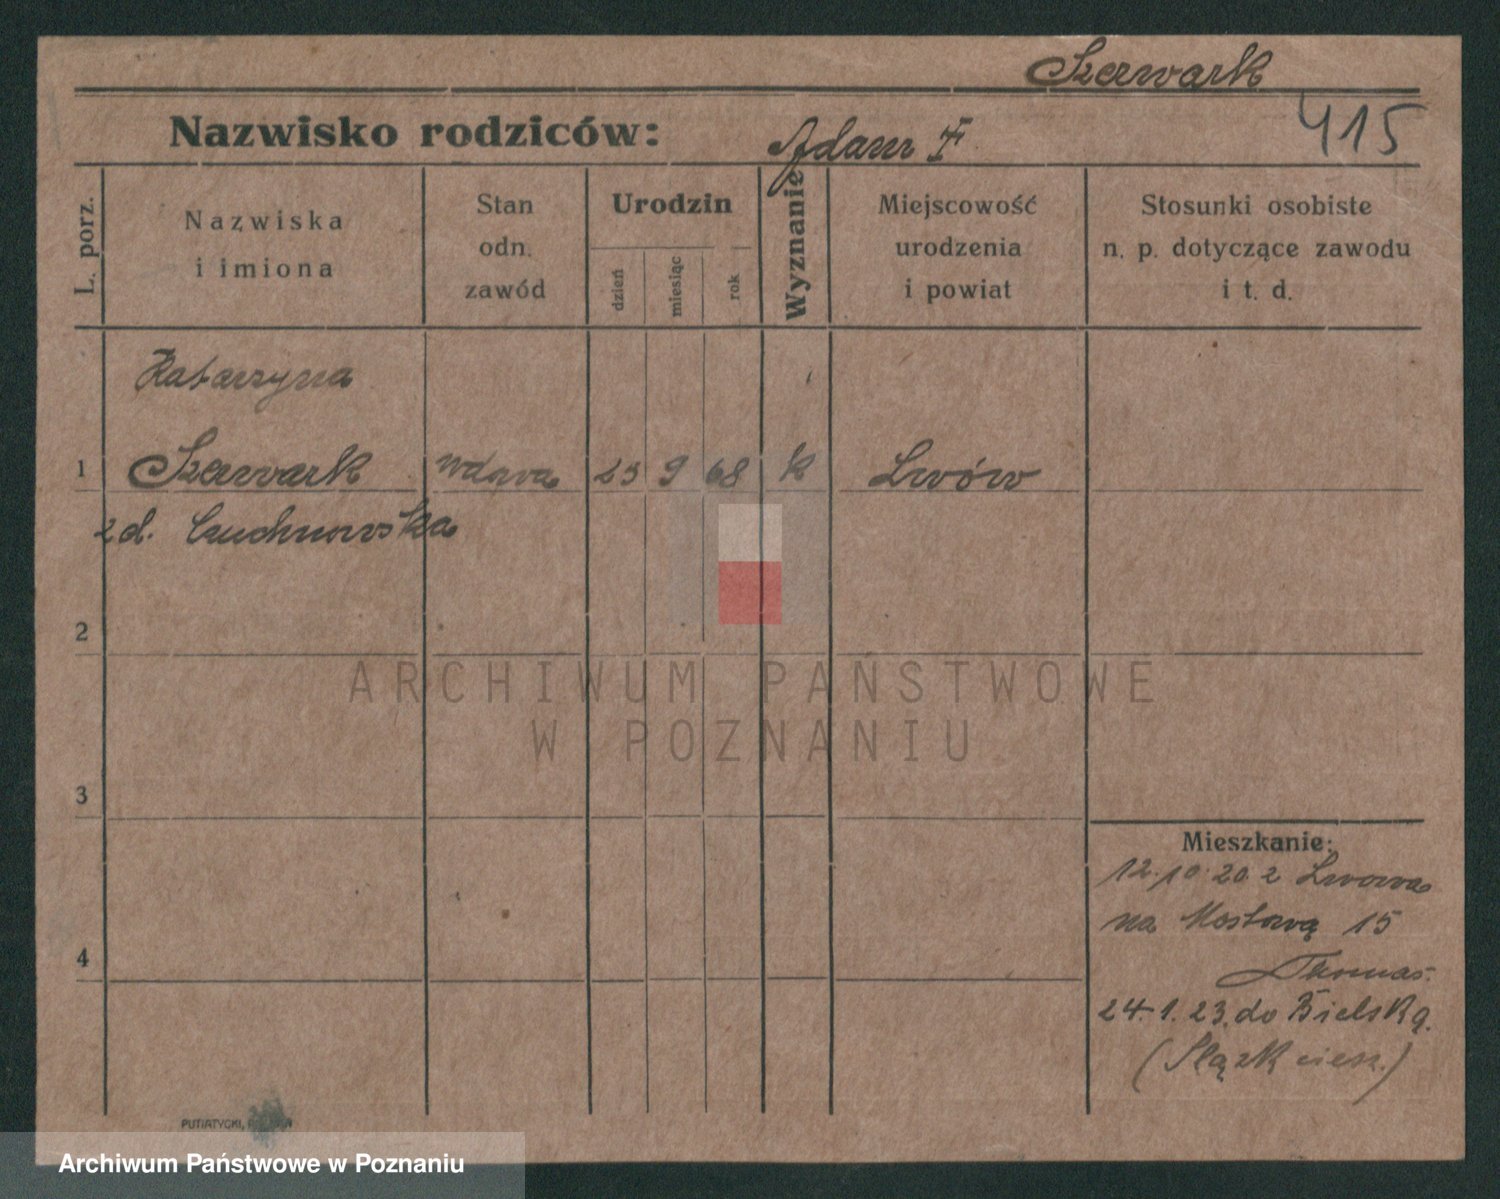 Szerwark
415
Nazwisko rodziców: Adam F
L. porz.
Nazwiska
i imiona
Stan
odn.
zawód
Urodzin
dzień
miesiąc
rok
Wyznanie
Miejscowość
urodzenia
i powiat
Stosunki osobiste
n. p. dotyczące zawodu
i t. d.
Katarzyna
1 Szerwark wdowa 23 9 68 k Lwów
zd. Czuchnowska
2
3
4
Mieszkanie:
12.10.20. z Lwowa
na Mostową 15
Thomas.
24.1.23. do Bielska.
(Slązk ciesz.)
PUTIATYCKI,
ARCHIWUM PAŃSTWOWE
W POZNANIU
Archiwum Państwowe w Poznaniu